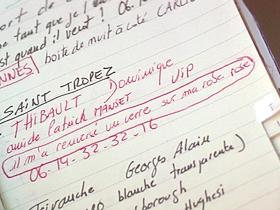 ort de
tant que je l'
est quand il veut! 06.1
NNES boîte de nuit à côté CARD
SAINT TROPEZ
THIBAULT Dominique
guide Patrick MANSET VIP
il m'a renversé un verre sur ma robe rose
06-14-32-32-16
Georges Alain
blanche transparente)
borough
Hughesi